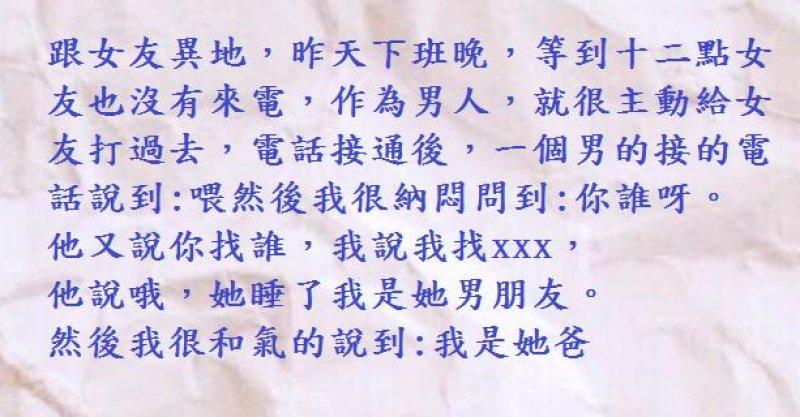 跟女友異地，昨天下班晚，等到十二點女
友也沒有來電，作為男人，就很主動給女
友打過去，電話接通後，一個男的接的電
話說到:喂然後我很納悶問到:你誰呀。
他又說你找誰，我說我找xxx，
他說哦，她睡了我是她男朋友。
然後我很和氣的說到:我是她爸